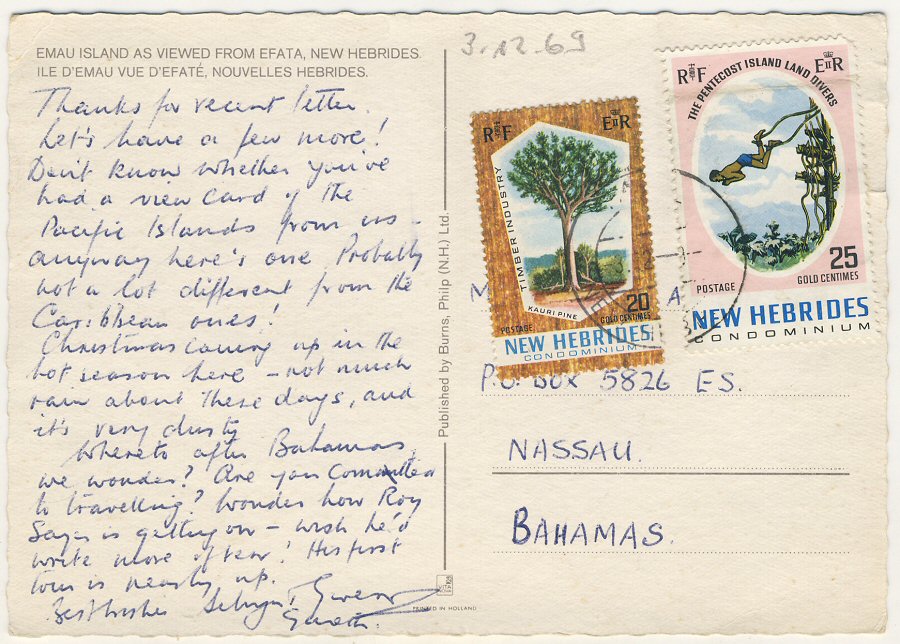 EMAU ISLAND AS VIEWED FROM EFATA, NEW HEBRIDES.
ILE D'EMAU VUE D'EFATÉ, NOUVELLES HEBRIDES.
Thanks for recent letter.
Let's have a few more!
Don't know whether you've
had a view card of the
Pacific Islands from us -
anyway here's one. Probably
not a lot different from the
Caribbean ones!
Christmas coming up in the
hot season here - not much
rain about these days, and
it's very dusty
Where to after Bahamas,
we wonder? Are you
to travelling? Wonder how Roy
is getting on - wish he'd
write more often! His first
tour is nearly up.
Best wishes Selwyn, Gwen
Gareth
Published by Burns, Philp (N.H.) Ltd.
PRINTED IN HOLLAND
3.12.69
RF EIIR
TIMBER INDUSTRY
KAURI PINE
20
GOLD CENTIMES
POSTAGE
NEW HEBRIDES
CONDOMINIUM
RF EIIR
THE PENTECOST ISLAND LAND DIVERS
25
GOLD CENTIMES
POSTAGE
NEW HEBRIDES
CONDOMINIUM
M A
P.O. Box 5826 ES.
NASSAU.
BAHAMAS.